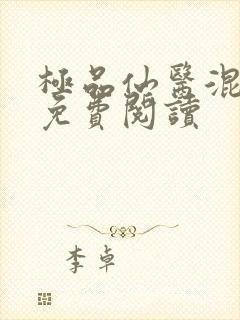 極品仙醫混
免費閱讀
李卓